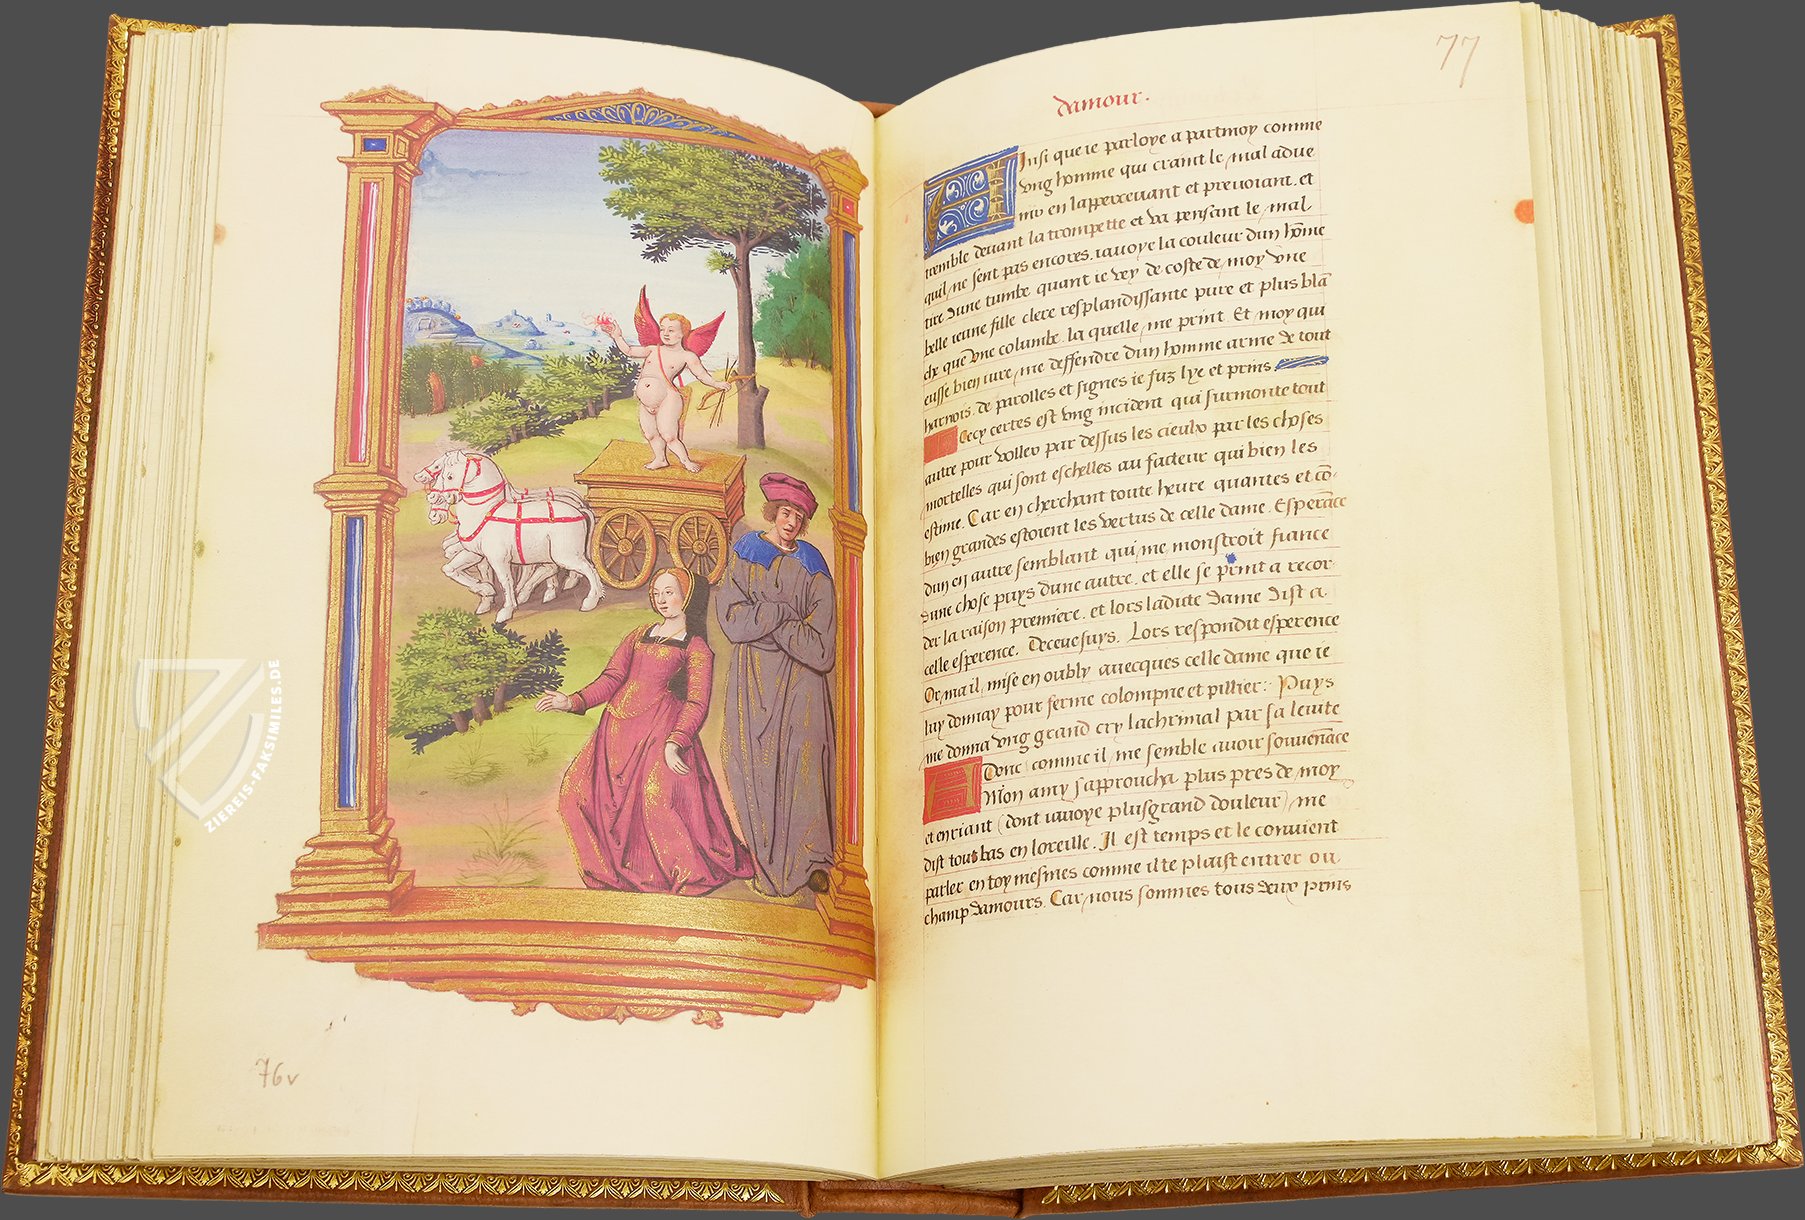 76v
ZIEREIS-FAKSIMILES.DE
77
damour.
Insi que ie parloye a part moy comme
vng homme qui craint le mal adue
nir en lappercevant et prevoiant. et
tremble devant la trompette et va pensant le mal
quil ne sent pas encores. iavoye la couleur dun hõme
tire dune tumbe quant ie vey de coste de moy vne
belle ieune fille clere resplandissante pure et plus blã
che que vne columbe. la quelle me print. Et moy qui
eusse bien iure me deffendre dun homme arme de tout
harnois. de parolles et signes ie fuz lye et prins
Cecy certes est vng incident qui surmonte tout
autre pour voller par dessus les cieulx par les choses
mortelles qui sont eschelles au facteur qui bien les
estime. Car en cherchant toute heure quantes et cõ-
bien grandes estoient les vertus de celle dame. Esperãce
dun en autre semblant qui me monstroit fiance
dune chose puys dune autre. et elle se print a recor-
der la raison premiere. et lors ladicte dame dist a
celle esperence. Deceue suys. Lors respondit esperence
Or ma il mise en oubly avecques celle dame que ie
luy donnay pour ferme colompne et pillier: Puys
me donna vng grand cry lachrimal par sa
Adonc comme il me semble avoir souvenãce
Mon amy sapproucha plus pres de moy
et enriant (dont iavoye plus grand douleur) me
dist tout bas en loreille. Il est temps et le convient
parler en toy mesmes comme il te plaist entrer ou
champ damours. Car nous sommes tous deux prins